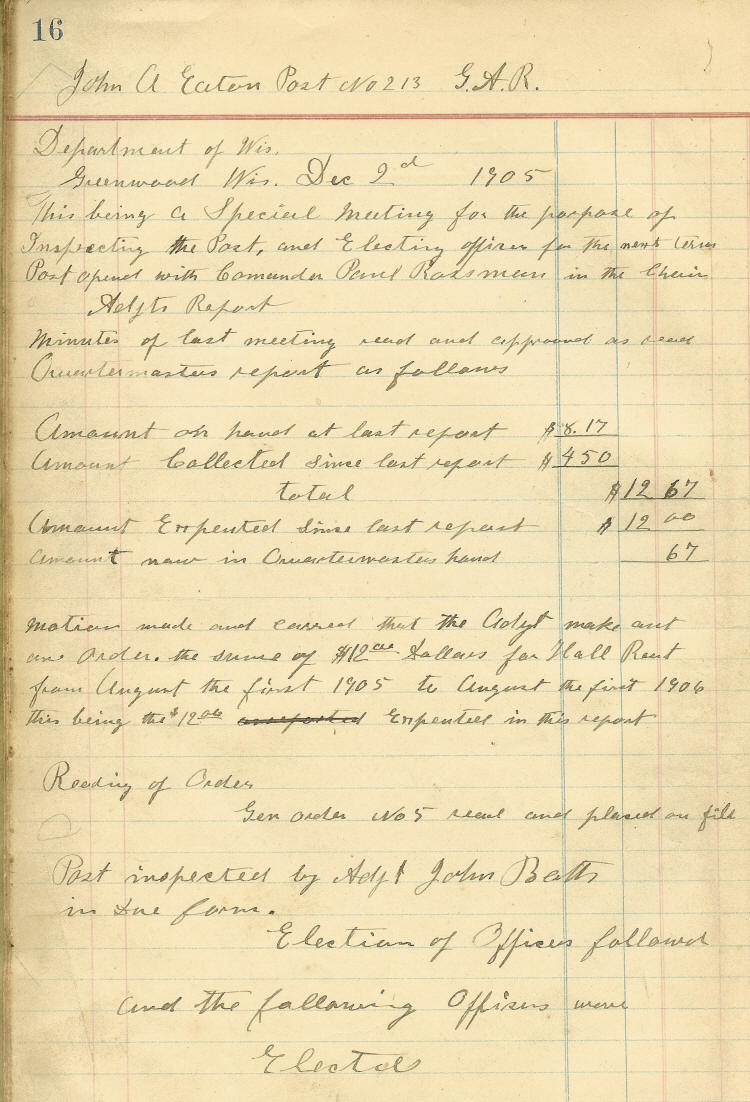 16
John A Eaton Post No 213 G.A.R.
Department of Wis.
Greenwood Wis. Dec 2d 1905
This being a Special Meeting for the purpose of
Inspecting the Post, and Electing officers for the next term
Post opend with Comander Paul Rossman in the Chair
Adjts Report
Minutes of last meeting read and approved as read
Quartermasters report as follows
Amount on hand at last report $8.17
Amount Collected since last report $4 50
total $12 67
Amount Expented since last report $12 00
Amount now in Quartermasters hand 67
Motion made and carred that the Adjt make out
an Order. the sume of $12 00 Dollars for Hall Rent
from August the first 1905 to August the first 1906
this being the $12 00 Expented in this report
Reading of Order
Gen order No 5 read and placed on file
Post inspected by Adjt John Batts
in Due form.
Election of Offices followed
and the following Officers were
Elected